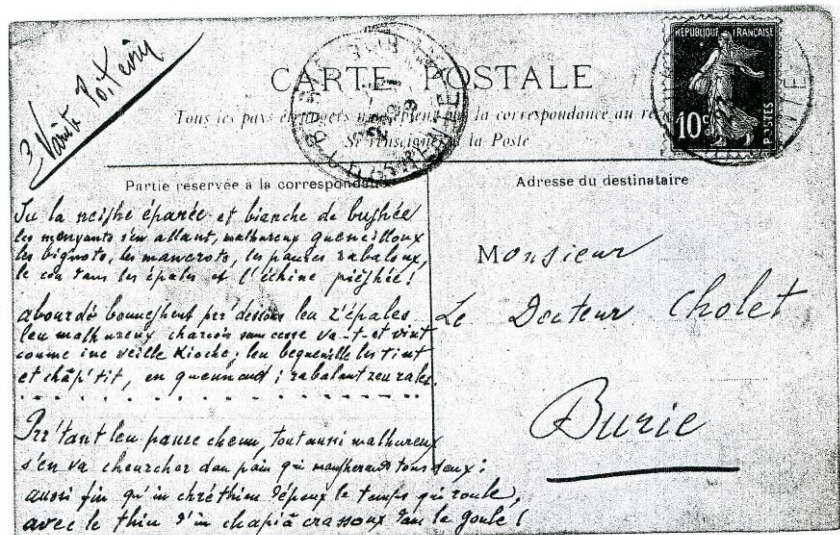 3 Vanité Poitevin
CARTE POSTALE
Tous les pays étrangers n'acceptent pas la correspondance au
Se renseigner à la Poste
REPUBLIQUE FRANÇAISE
10c
POSTES
Partie réservée à la correspondance
Adresse du destinataire
Su la neighe éparée et bianche de bughée
les menyants s'en allant, malhureux guenilloux
les bignots, les mancrots, les paures rabaloux,
le cou dans les épales et l'échine pieghée !
abourdés bounejhent pr' dessous leu z'épales
leu malhureux charcois sans cesse va-t-et vint
coume ine veille kioche ; leu bequenille les tint
et chap'tit, en queunant ; rabalant zeu rales.
Prr'tant leu paure cheun, tout aussi malhureux
s'en va cheurcher dau pain qui mangherant tous deux :
aussi fin qu'in chréthien d'épeux le temps qui roule,
avec le thiu d'in chapiâ crassoux dan la goule !
Monsieur
Le Docteur Cholet
Burie